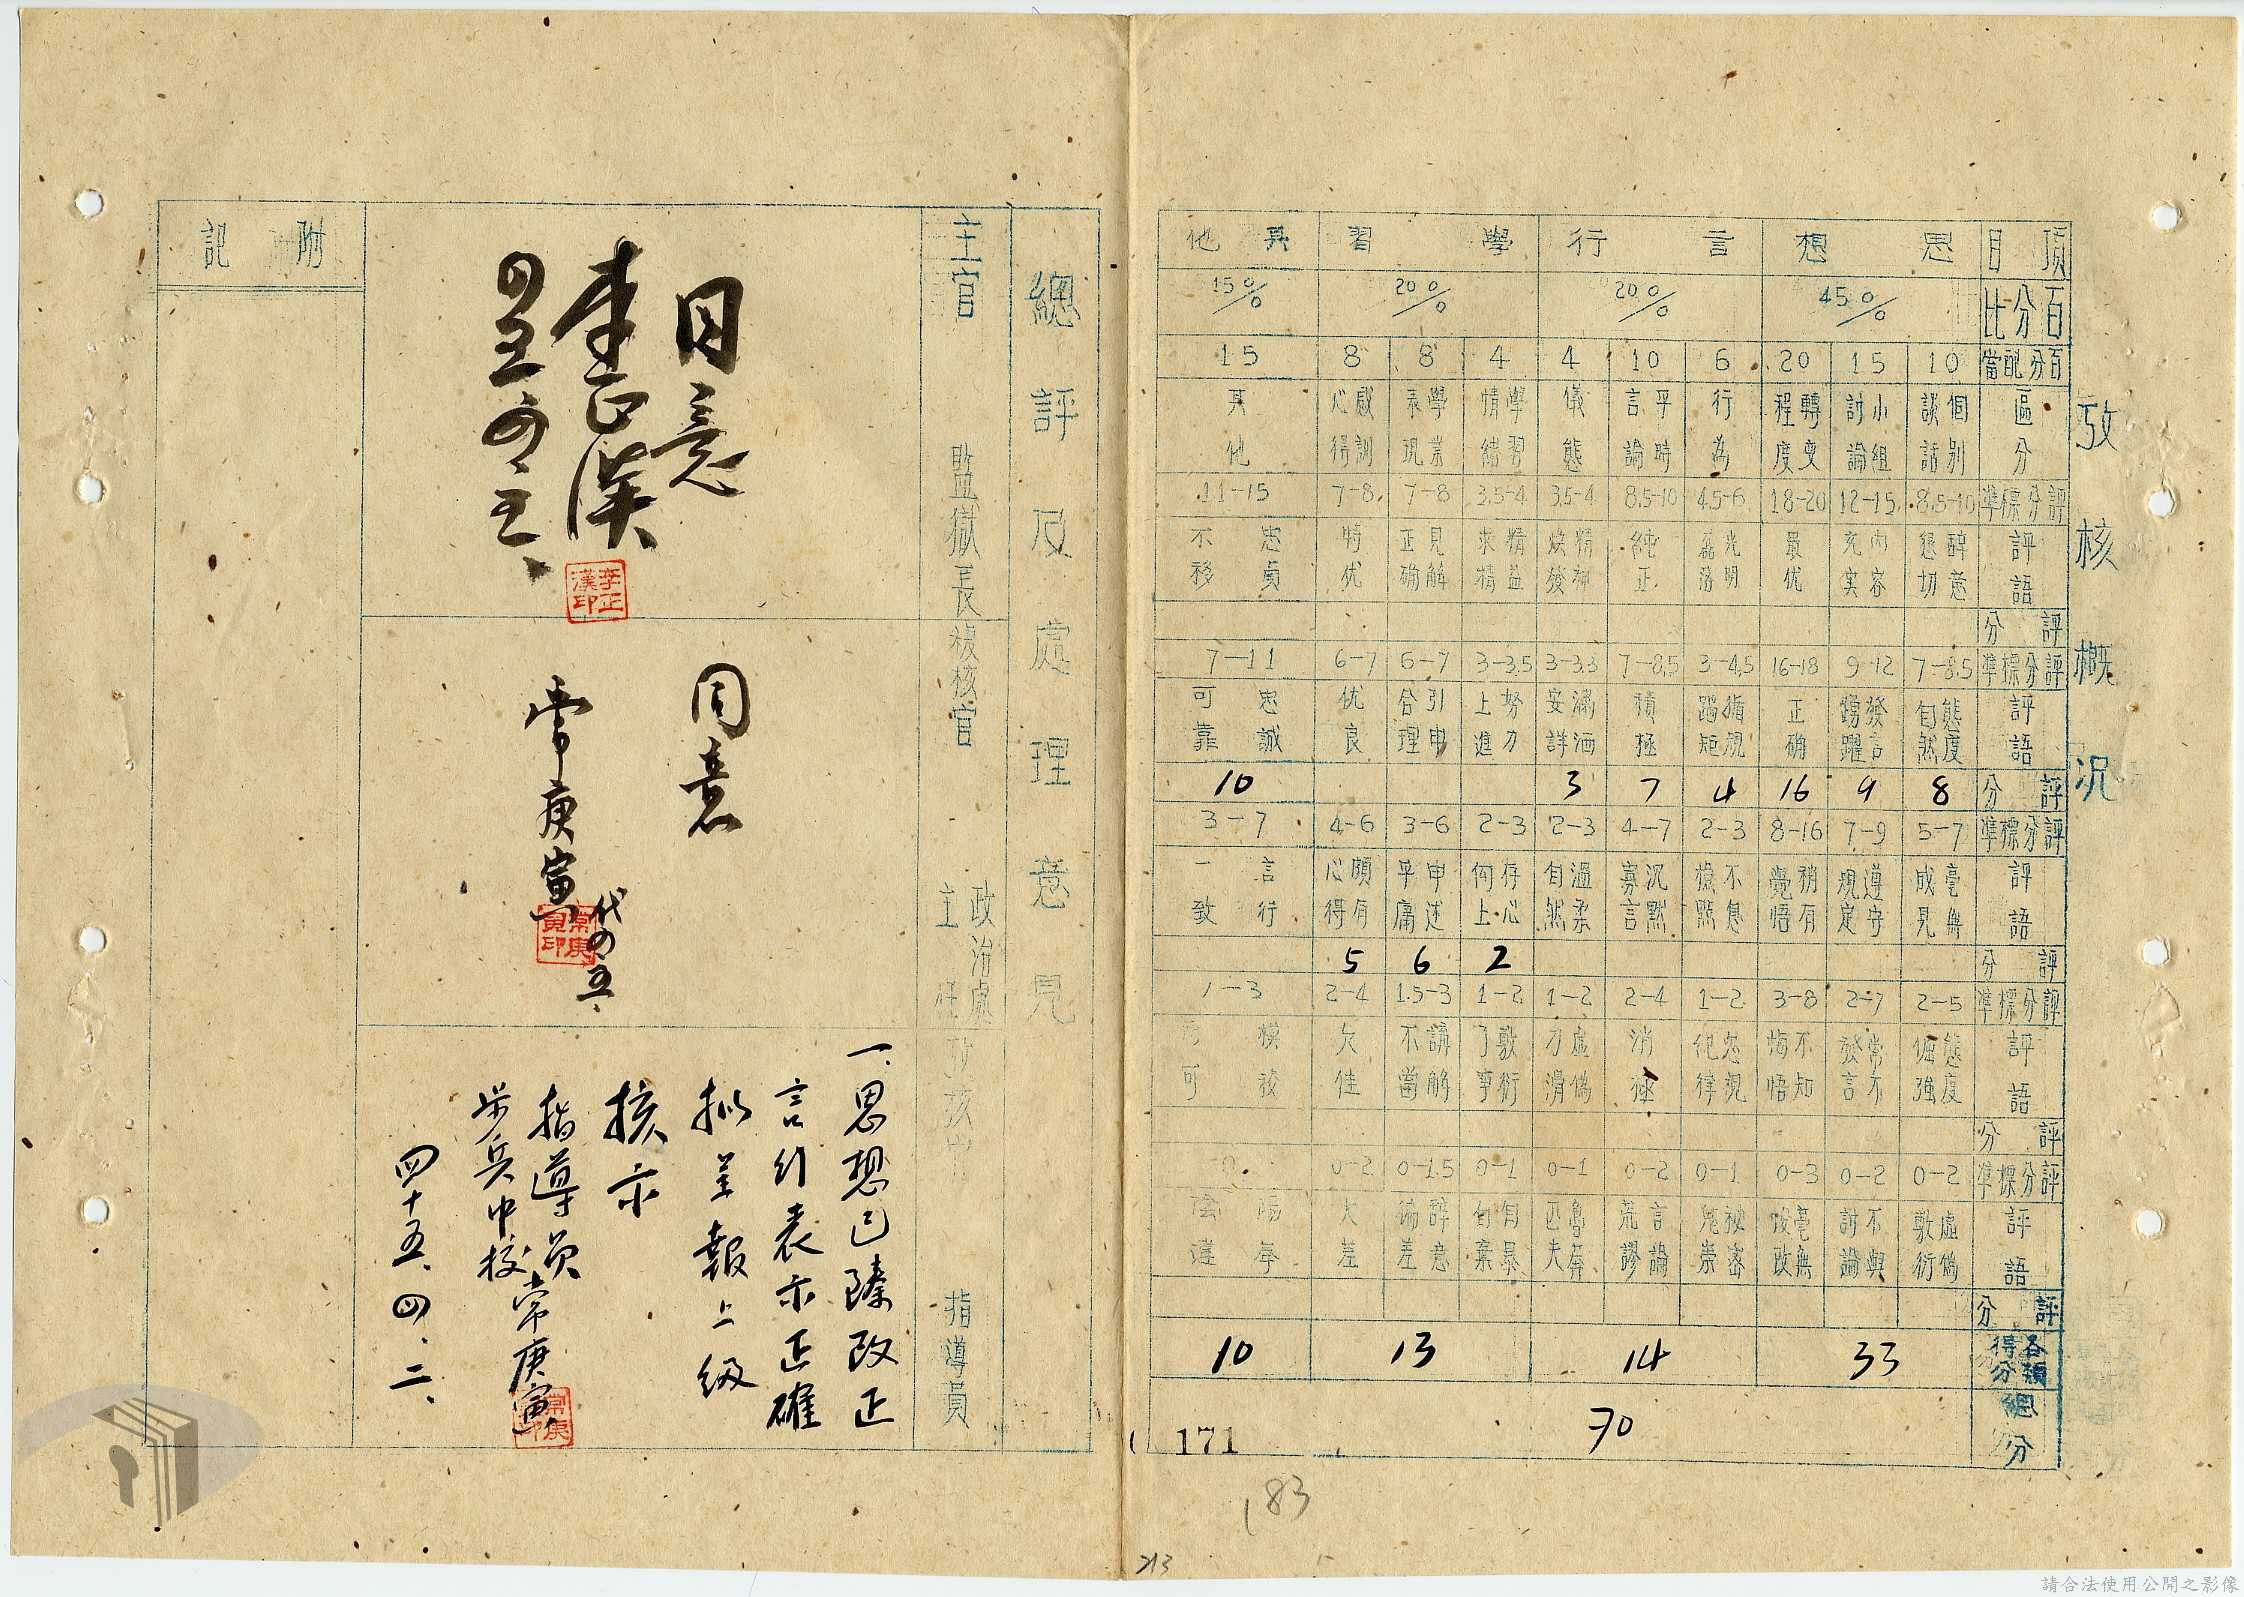 攷核概况
項目 思想 言行 學習 其他
百分比 45% 20% 20% 15%
百分配當 10 15 20 6 10 4 4 8 8 15
區分 個別談話 小組討論 轉變程度 行為 平時言論 儀態 學習情緒 學業表現 感訓心得 其他
評分標準 8.5-10 12-15 18-20 4.5-6 8.5-10 3.5-4 3.5-4 7-8 7-8 11-15
評語 醉意懇切 內容充实 最优 光明磊落 純正 精神焕發 精益求精 見解正确 特优 忠貞不移
評分
評分標準 7-8.5 9-12 16-18 3-4.5 7-8.5 3-3.5 3-3.5 6-7 6-7 7-11
評語 態度自然 發言踴躍 正确 循規蹈矩 積極 瀟洒安詳 努力上進 引申合理 优良 忠誠可靠
評分 8 9 16 4 7 3 10
評分標準 5-7 7-9 8-16 2-3 4-7 2-3 2-3 3-6 4-6 3-7
評語 毫無成見 遵守規定 稍有覺悟 不怠檢點 沉默寡言 溫柔自然 存心向上 申述平庸 頗有心得 言行一致
評分 2 6 5
評分標準 2-5 2-7 3-8 1-2 2-4 1-2 1-2 1.5-3 2-4 1-3
評語 態度倔強 常不發言 不知悔悟 忽視紀律 消極 虛偽刁滑 敷衍了事 講解不當 欠佳 模稜可
評分
評分標準 0-2 0-2 0-3 0-1 0-2 0-1 0-1 0-1.5 0-2 0
評語 虛偽敷衍 不與討論 毫無改 秘密鬼祟 言論荒謬 自暴自棄 辭意 差 陽奉陰違
評分
各項得分 33 14 13 10
總分 70
171
183
213
總評及處理意見
主官
監獄長
同意
李正漢
四五、四、三、
李正漢印
核官
政治處主任
同意
常庚寅
代四、五、
常庚寅印
攷核官
指導員
一、思想已臻改正
言行表示正確
拟呈報上級
核示
指導員常庚寅
步兵中校
四十五、四、二、
常庚寅印
附記
請合法使用公開之影像